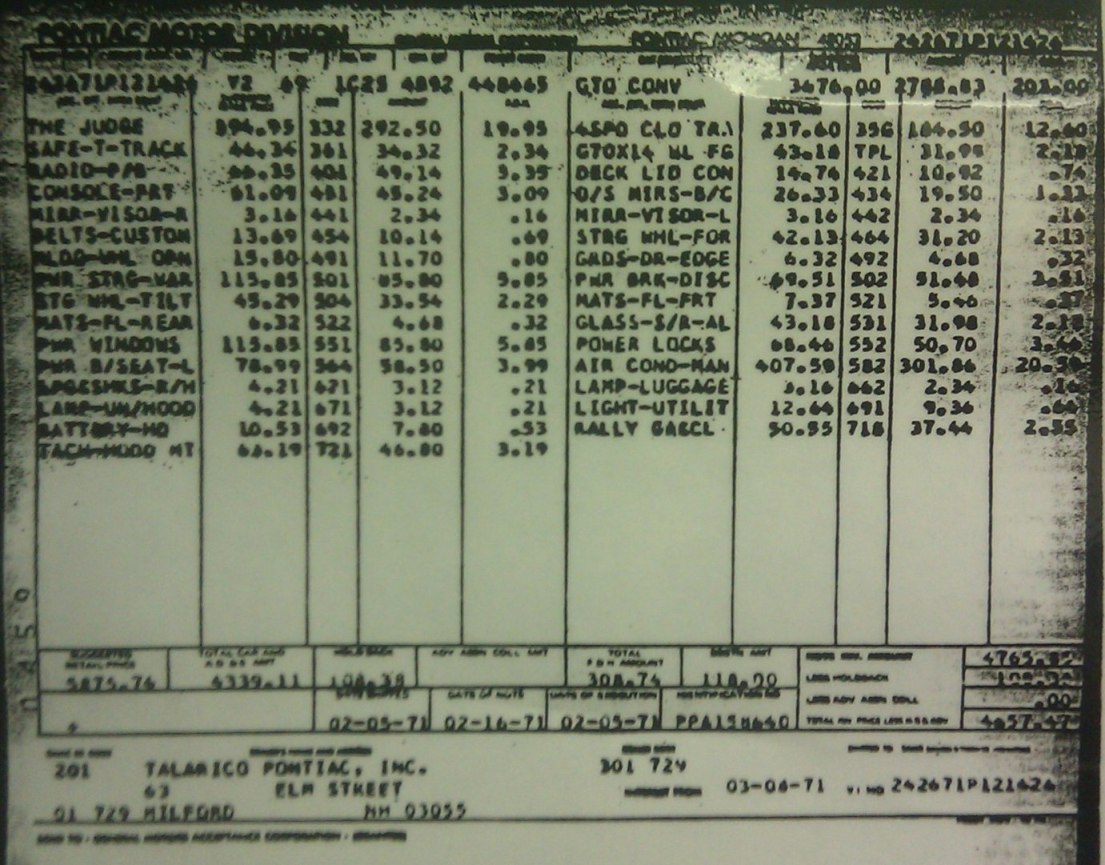 PONTIAC MOTOR DIVISION PONTIAC, MICHIGAN 48053 242671P121424
242671P121424 V2 69 1C25 4892 448665 GTO CONV 3476.00 2788.83 203.00
THE JUDGE 394.95 332 292.50 19.95 4SPD CLO TRA 237.60 356 184.50 12.60
SAFE-T-TRACK 46.34 361 34.32 2.34 G70X14 WL FG 43.18 TPL 31.98 2.18
RADIO-P/B 66.35 401 49.14 3.35 DECK LID CON 14.74 421 10.92 .74
CONSOLE-FRT 61.09 431 45.24 3.09 O/S MIRS-B/C 26.33 434 19.50 1.33
MIRR-VISOR-R 3.16 441 2.34 .16 MIRR-VISOR-L 3.16 442 2.34 .16
BELTS-CUSTOM 13.69 454 10.14 .69 STRG WHL-FOR 42.13 464 31.20 2.13
MLDG-WHL OPN 15.80 491 11.70 .80 GRDS-DR-EDGE 6.32 492 4.68 .32
PWR STRG-VAR 115.85 501 85.80 5.85 PWR BRK-DISC 69.51 502 51.48 3.51
STG WHL-TILT 45.29 504 33.54 2.29 MATS-FL-FRT 7.37 521 5.46 .37
MATS-FL-REAR 6.32 522 4.68 .32 GLASS-S/R-AL 43.18 531 31.98 2.18
PWR WINDOWS 115.85 551 85.80 5.85 POWER LOCKS 68.46 552 50.70 3.46
PWR B/SEAT-L 78.99 564 58.50 3.99 AIR COND-MAN 407.59 582 301.86 20.59
4.21 621 3.12 .21 LAMP-LUGGAGE 3.16 662 2.34 .16
LAMP-UN/HOOD 4.21 671 3.12 .21 LIGHT-UTILIT 12.64 691 9.36 .64
BATTERY-HD 10.53 692 7.80 .53 RALLY GA&CL 50.55 718 37.44 2.55
TACH-HOOD MT 63.19 721 46.80 3.19
SUGGESTED RETAIL PRICE TOTAL CAR AND HOLD BACK ADV ASSN COLL AMT TOTAL
5875.76 4339.11 108.38 308.74 118.00 4765.85
LESS HOLDBACK 108.38
LESS ADV ASSN COLL .00
DATE OF NOTE DATE OF EXECUTION IDENTIFICATION NO
02-05-71 02-16-71 02-05-71 PPA15H640 4657.47
201 TALARICO PONTIAC, INC. 301 729
63 ELM STREET INTEREST FROM 03-08-71 242671P121424
01 729 MILFORD NH 03055
SEND TO - GENERAL MOTORS ACCEPTANCE CORPORATION